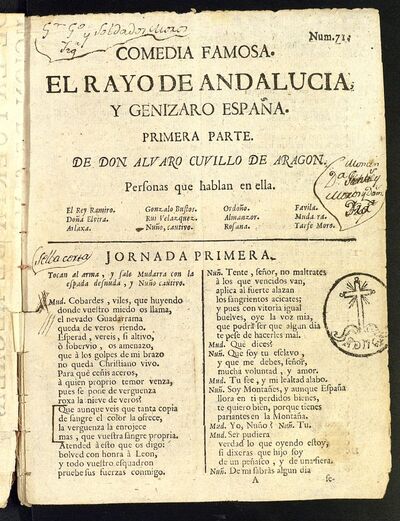 Num. 71.
COMEDIA FAMOSA.
EL RAYO DE ANDALUCIA,
Y GENIZARO ESPAÑA.
PRIMERA PARTE.
DE DON ALVARO CUVILLO DE ARAGON.
Personas que hablan en ella.
El Rey Ramiro. Gonzalo Bustos. Ordoño. Favila.
Doña Elvira. Rui Velazquez. Almanzor. Mudarra.
Arlaxa. Nuño, cautivo. Rosana. Tarfe Moro.
JORNADA PRIMERA.
Tocan al arma, y sale Mudarra con la
espada desnuda, y Nuño cautivo.
Mud. Cobardes, viles, que huyendo
donde vuestro miedo os llama,
el nevado Guadarrama
queda de veros riendo.
Esperad, vereis, si altivo,
ò sobervio, os amenazo,
que à los golpes de mi brazo
no queda Christiano vivo.
Para què ceñis aceros,
à quien proprio temor venza,
pues se pone de verguenza
roxa la nieve de veros?
Que aunque veis que tanta copia
de sangre el color la ofrece,
la verguenza la enrojece
mas, que vuestra sangre propria.
Atended à esto que os digo:
bolved con honra à Leon,
y todo vuestro esquadron
pruebe sus fuerzas conmigo.
Nuñ. Tente, señor, no maltrates
à los que vencidos van,
aplica al fuerte alazan
los sangrientos acicates;
y pues con vitoria igual
buelves, oye la voz mia,
que podrà ser que algun dia
te pese de hacerles mal.
Mud. Què dices?
Nuñ. Que soy tu esclavo,
y que me debes, señor,
mucha voluntad, y amor.
Mud. Tu fee, y mi lealtad alabo.
Nuñ. Soy Montañes, y aunque España
llora en ti perdidos bienes,
te quiero bien, porque tienes
parientes en la Montaña.
Mud. Yo, Nuño? Nuñ. Tu.
Mud. Ser pudiera
verdad lo que oyendo estoy,
si dixeras que hijo soy
de un peñasco, y de una fiera.
Nuñ. De mi sabràs algun dia
A
se-